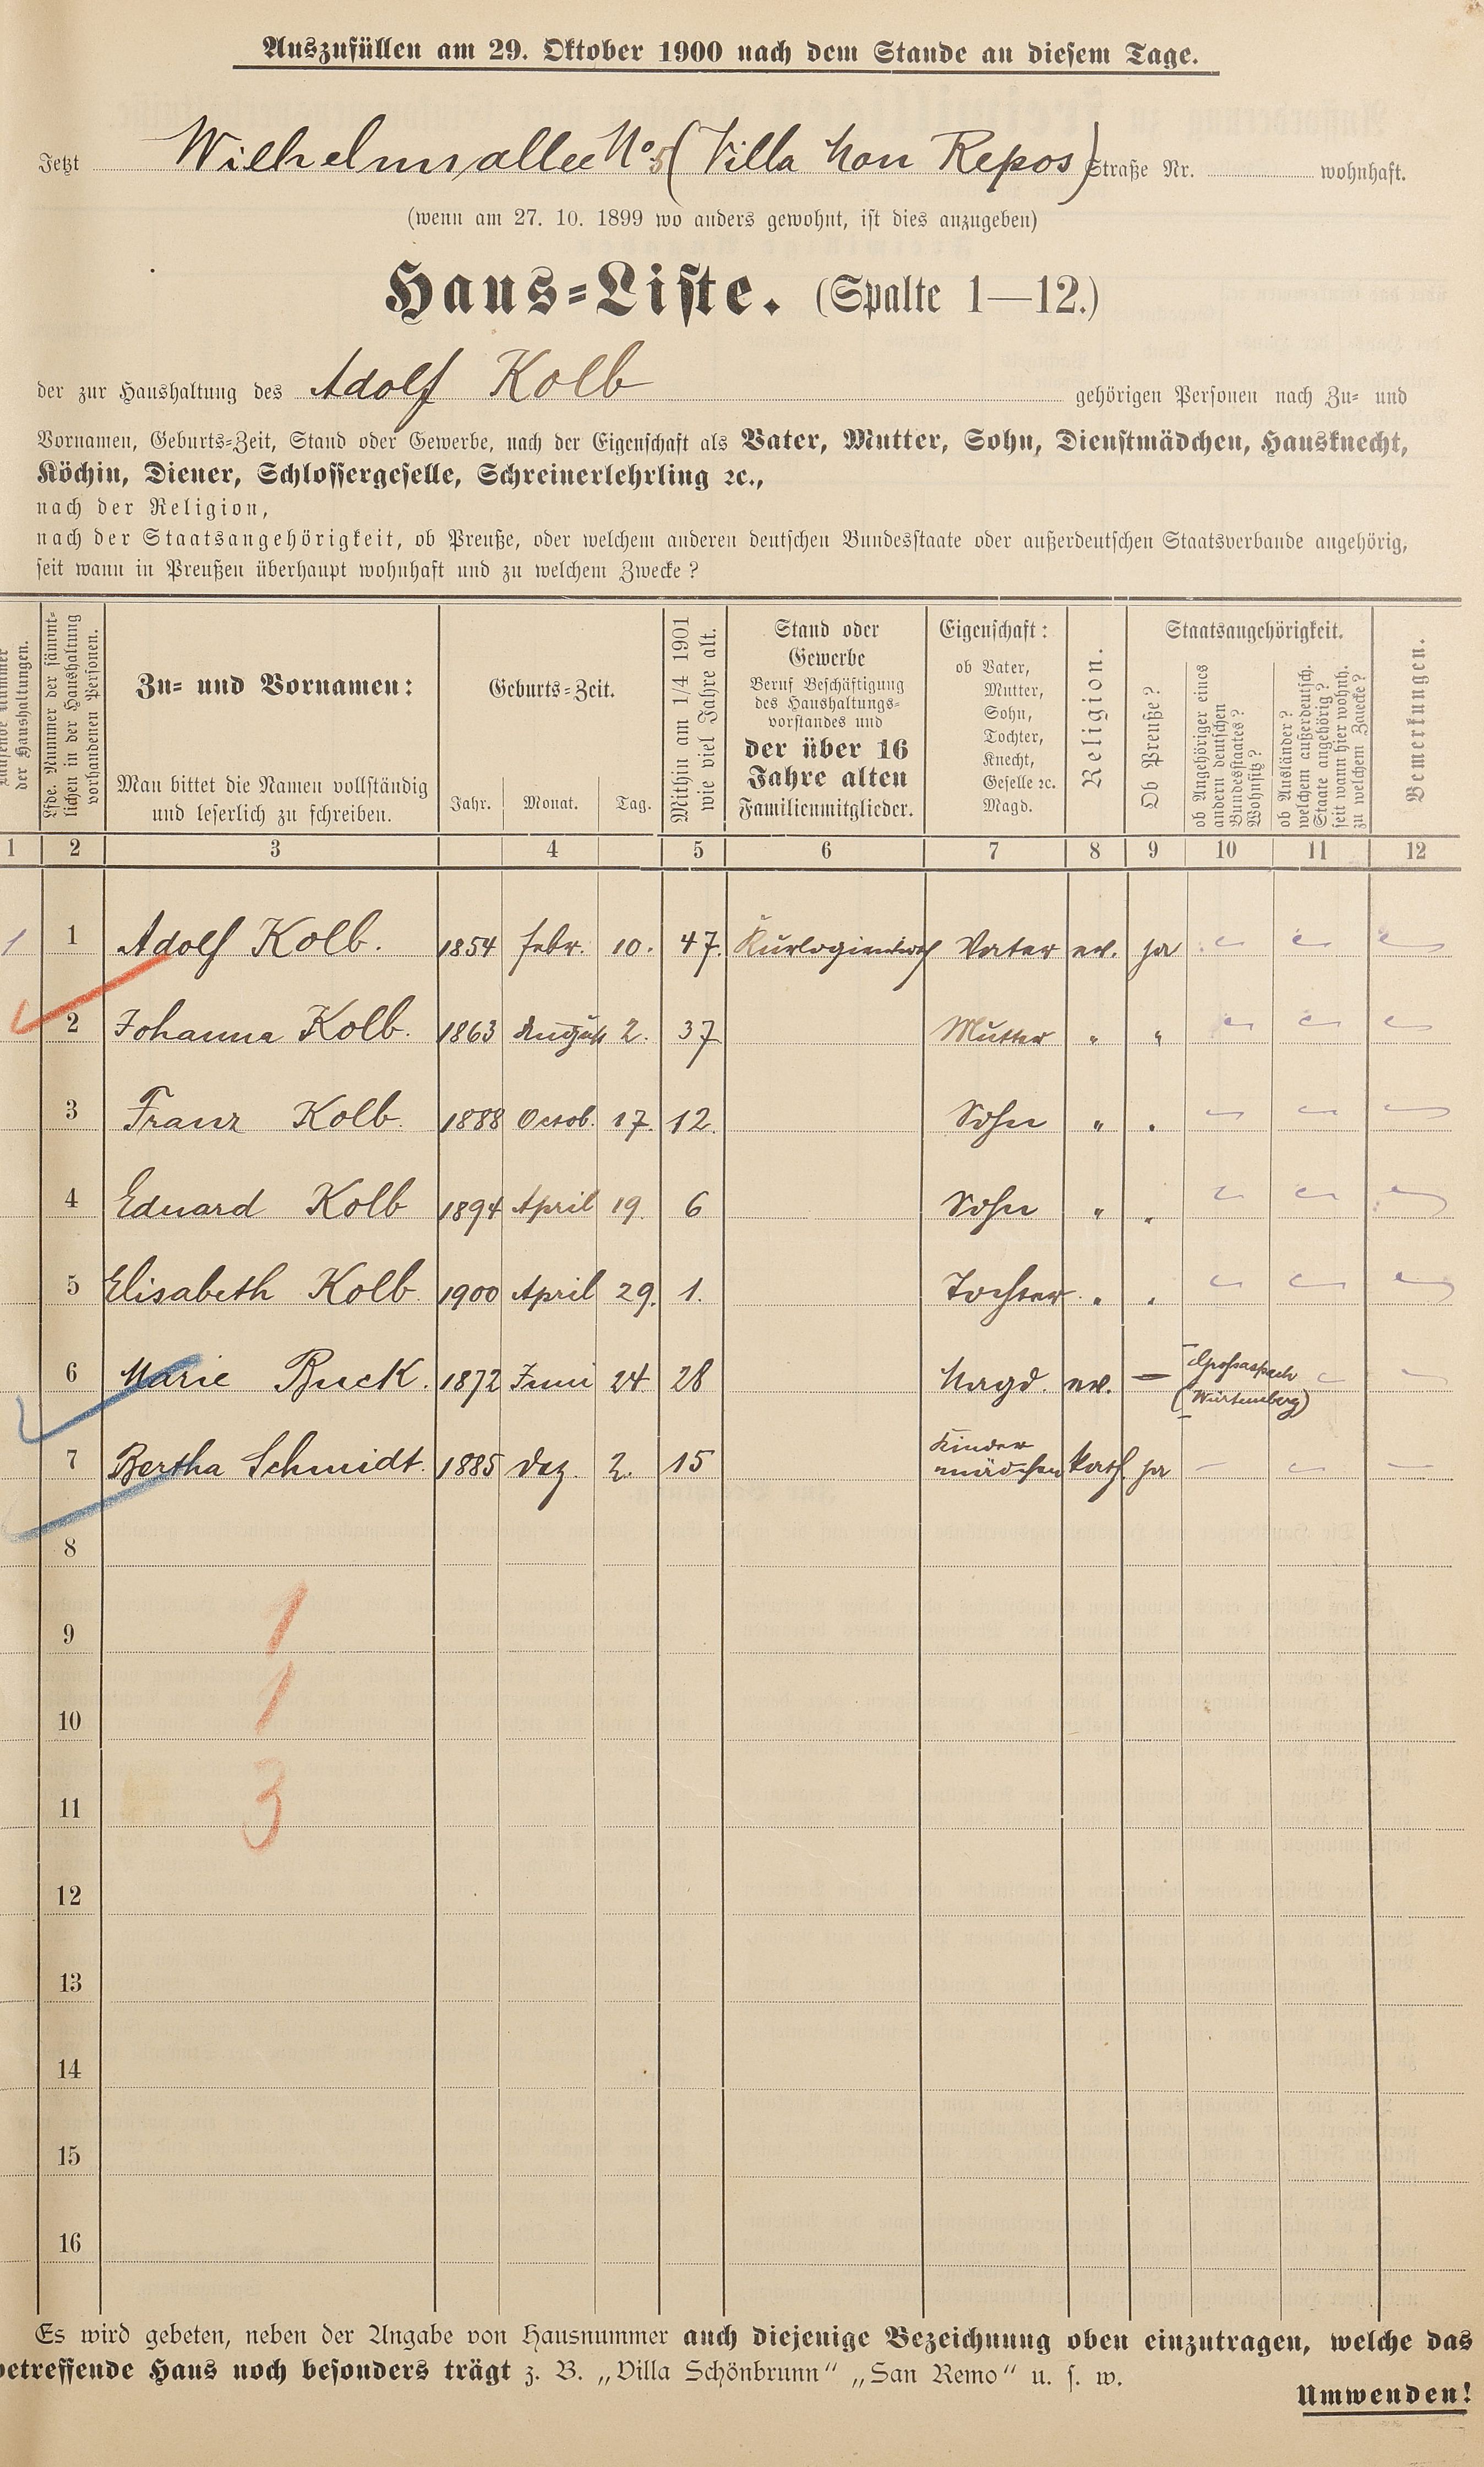 Auszufüllen am 29. Oktober 1900 nach dem Stande an diesem Tage.
Jetzt Wilhelmsallee No 5 (Villa Mon Repos) Straße Nr. wohnhaft.
(wenn am 27. 10. 1899 wo anders gewohnt, ist dies anzugeben)
Haus-Liste. (Spalte 1—12.)
der zur Haushaltung des Adolf Kolb gehörigen Personen nach Zu- und
Vornamen, Geburts-Zeit, Stand oder Gewerbe, nach der Eigenschaft als Vater, Mutter, Sohn, Dienstmädchen, Hausknecht,
Köchin, Diener, Schlossergeselle, Schreinerlehrling ꝛc.,
nach der Religion,
nach der Staatsangehörigkeit, ob Preuße, oder welchem anderen deutschen Bundesstaate oder außerdeutschen Staatsverbande angehörig,
seit wann in Preußen überhaupt wohnhaft und zu welchem Zwecke?
Laufende Nummer
der Haushaltungen.
Lfde. Nummer der sämmt-
lichen in der Haushaltung
vorhandenen Personen.
Zu- und Vornamen:
Man bittet die Namen vollständig
und leserlich zu schreiben.
Geburts-Zeit.
Jahr. Monat. Tag.
Mithin am 1/4 1901
wie viel Jahre alt.
Stand oder
Gewerbe
Beruf Beschäftigung
des Haushaltungs-
vorstandes und
der über 16
Jahre alten
Familienmitglieder.
Eigenschaft:
ob Vater,
Mutter,
Sohn,
Tochter,
Knecht,
Geselle ꝛc.
Magd.
Religion.
Staatsangehörigkeit.
Ob Preuße?
ob Angehöriger eines
andern deutschen
Bundesstaates?
Wohnsitz?
ob Ausländer?
welchem außerdeutsch.
Staate angehörig?
seit wann hier wohnh.
zu welchem Zwecke?
Bemerkungen.
1 2 3 4 5 6 7 8 9 10 11 12
1 1 Adolf Kolb. 1854 Febr. 10. 47. Kurlogierwirth Vater ev. ja
2 Johanna Kolb. 1863 August 2. 37 Mutter " "
3 Franz Kolb. 1888 Octob. 17. 12. Sohn " "
4 Eduard Kolb 1894 April 19. 6 Sohn " "
5 Elisabeth Kolb. 1900 April 29. 1. Tochter " "
6 Marie Buck. 1872 Juni 24 28 Magd. ev. — Großaspach
(Würtemberg)
7 Bertha Schmidt. 1885 Dez. 2. 15 Kinder
mädchen kath. ja
8
9
1
10
1
11
3
12
13
14
15
16
Es wird gebeten, neben der Angabe von Hausnummer auch diejenige Bezeichnung oben einzutragen, welche das
betreffende Haus noch besonders trägt z. B. „Villa Schönbrunn“ „San Remo“ u. s. w.
Umwenden!